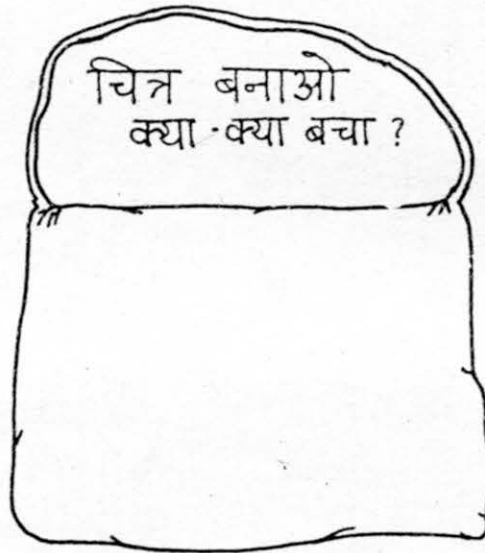 चित्र बनाओ
क्या-क्या बचा ?